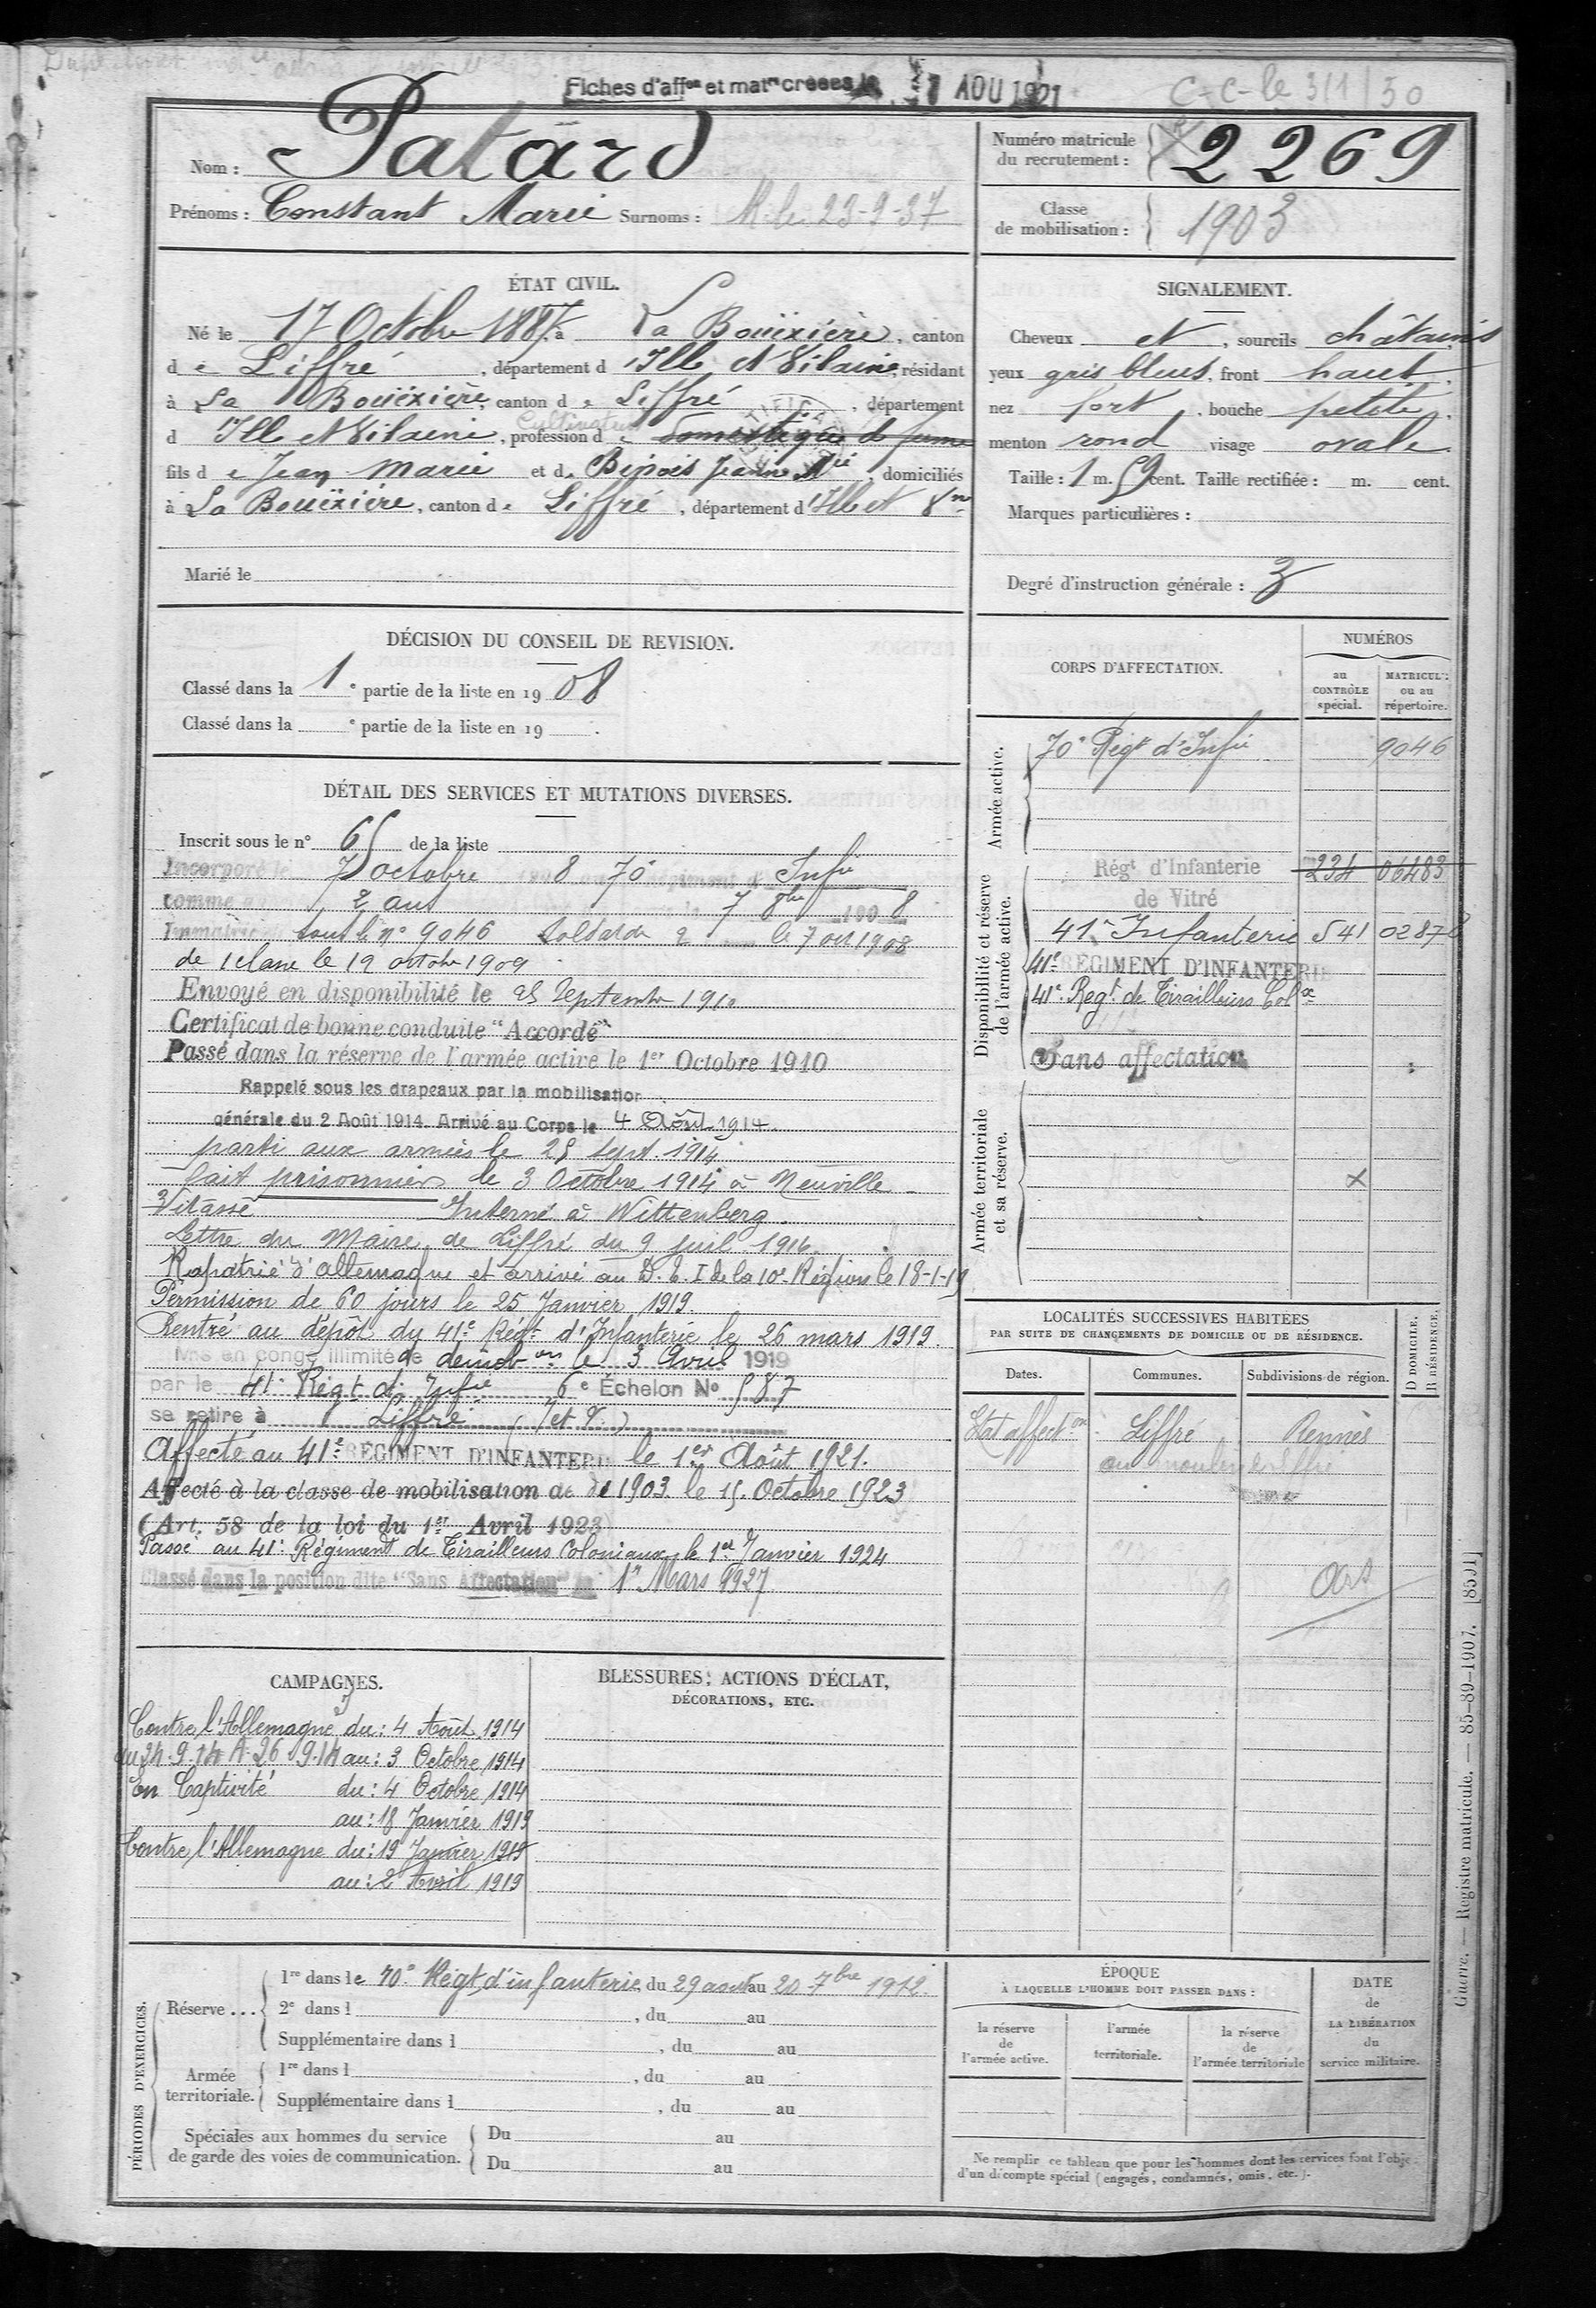 Fiches d'aff^on et mat^le creees le 7 AOU 1921
C-C- le 3/1/50
Nom : Patard
Prénoms : Constant Marie Surnoms : M. le 23-9-37
Numéro matricule du recrutement : 2269
Classe de mobilisation : 1903
ÉTAT CIVIL.
Né le 17 Octobre 1887, à La Bouëxière, canton
de Liffré, département d'Ille et Vilaine, résidant
à La Bouëxière, canton de Liffré, département
d'Ille et Vilaine, profession de Cultivateur domestique de ferme
fils de Jean Marie et de Jeanne Mie, domiciliés
à La Bouëxière, canton de Liffré, département d'Ille et Vne
Marié le
SIGNALEMENT.
Cheveux et, sourcils châtains
yeux gris bleus, front haut,
nez fort, bouche petite,
menton rond visage ovale.
Taille : 1 m. 59 cent. Taille rectifiée : m. cent.
Marques particulières :
Degré d'instruction générale : 3
DÉCISION DU CONSEIL DE REVISION.
Classé dans la 1e partie de la liste en 1908
Classé dans la e partie de la liste en 19 .
DÉTAIL DES SERVICES ET MUTATIONS DIVERSES.
Inscrit sous le n° 65 de la liste
Incorporé le 7 octobre 8 70e régiment d' Infie
comme 2 ans 7 8bre 1908
Immatriculé sous le n° 9046 soldat de 2 le 7 oct 1908
de 1 classe le 19 octobre 1909
Envoyé en disponibilité le 25 Septembre 1910
Certificat de bonne conduite "Accordé"
Passé dans la réserve de l'armée active le 1er Octobre 1910
Rappelé sous les drapeaux par la mobilisation
générale du 2 Août 1914. Arrivé au Corps le 4 Août 1914.
parti aux armées le 25 Sept. 1914
fait prisonnier le 3 Octobre 1914 à Neuville
Vitasse Interné à Wittenberg.
Lettre du Maire de Liffré du 9 juil. 1916.
Rapatrié d'allemagne et arrivé au D. E. I de la 10e Région le 18-1-19
Permission de 60 jours le 25 Janvier 1919.
Rentré au dépôt du 41e Régt d'Infanterie le 26 mars 1919.
Mis en congé illimité de démob on le 3 Avril 1919
par le 41e Régt di Infie 6e Échelon No 587
se retire à Liffré (I et V.)
Affecté au 41e REGIMENT D'INFANTERIE le 1er Août 1921.
Affecté à la classe de mobilisation de 1903 le 15 Octobre 1923
(Art. 58 de la loi du 1er Avril 1923)
Passé au 41e Régiment de Tirailleurs Coloniaux le 1er Janvier 1924
Classé dans la position dite "Sans Affectation" le 1er Mars 1927
CORPS D'AFFECTATION.
NUMÉROS
au CONTRÔLE spécial.
MATRICULE ou au répertoire.
Armée active.
70e Régt d'Infie 9046
Disponibilité et réserve de l'armée active.
Régt d'Infanterie 234 06483
de Vitré
41e Infanterie 541 02878
41e REGIMENT D'INFANTERIE
41e Regt de Tirailleurs Colx
Sans affectation
Armée territoriale et sa réserve.
x
LOCALITÉS SUCCESSIVES HABITÉES
PAR SUITE DE CHANGEMENTS DE DOMICILE OU DE RÉSIDENCE.
Dates. Communes. Subdivisions de région.
D DOMICILE. R RÉSIDENCE.
Etat affecton Liffré Rennes
au moulin
CAMPAGNES.
Contre l'Allemagne du : 4 Août 1914
du 24.9.14 A 26.9.14 au : 3 Octobre 1914
en Captivité du : 4 Octobre 1914
au : 18 Janvier 1919
Contre l'Allemagne du : 19 Janvier 1919
au : 2 Avril 1919
BLESSURES, ACTIONS D'ÉCLAT,
DÉCORATIONS, ETC.
PÉRIODES D'EXERCICES.
Réserve ...
1re dans le 70e Régt d'infanterie, du 29 août au 20 7bre 1912
2e dans l , du au
Supplémentaire dans l , du au
Armée territoriale.
1re dans l , du au
Supplémentaire dans l , du au
Spéciales aux hommes du service de garde des voies de communication.
Du au
Du au
ÉPOQUE
À LAQUELLE L'HOMME DOIT PASSER DANS :
la réserve de l'armée active.
l'armée territoriale.
la réserve de l'armée territoriale
DATE de LA LIBÉRATION du service militaire.
Ne remplir ce tableau que pour les hommes dont les services font l'objet
d'un décompte spécial (engagés, condamnés, omis, etc.).
Guerre. — Registre matricule. — 85-89-1907. [8501]